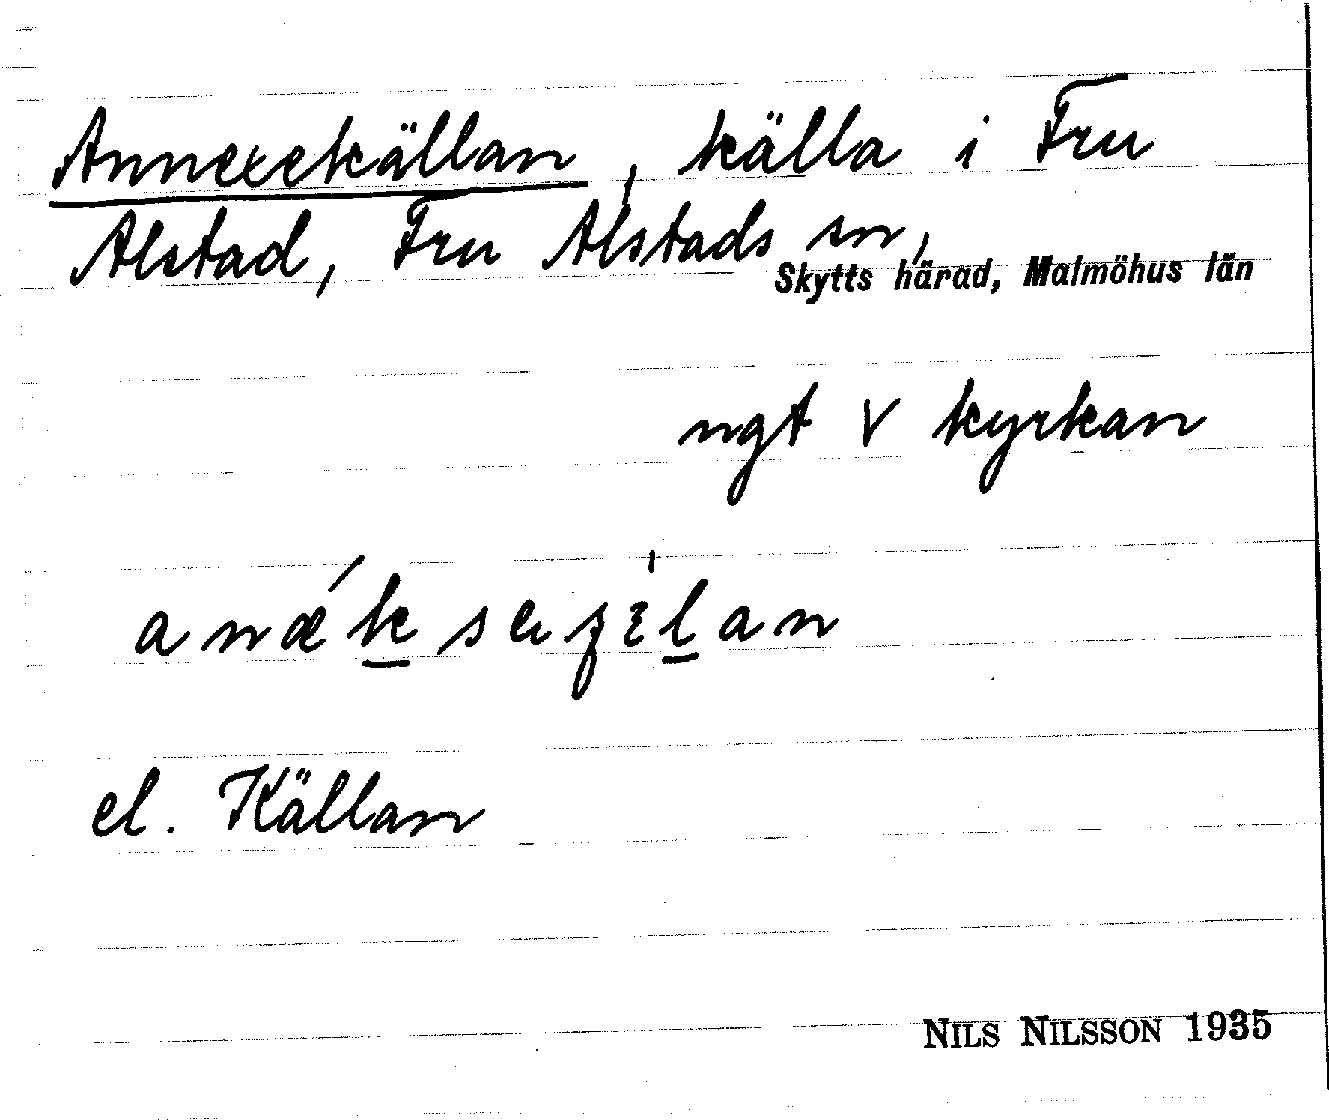 Annexekällan, källa i Fru
Alstad, Fru Alstads sn,
Skytts härad, Malmöhus län
ngt V kyrkan
el. Källan
NILS NILSSON 1935